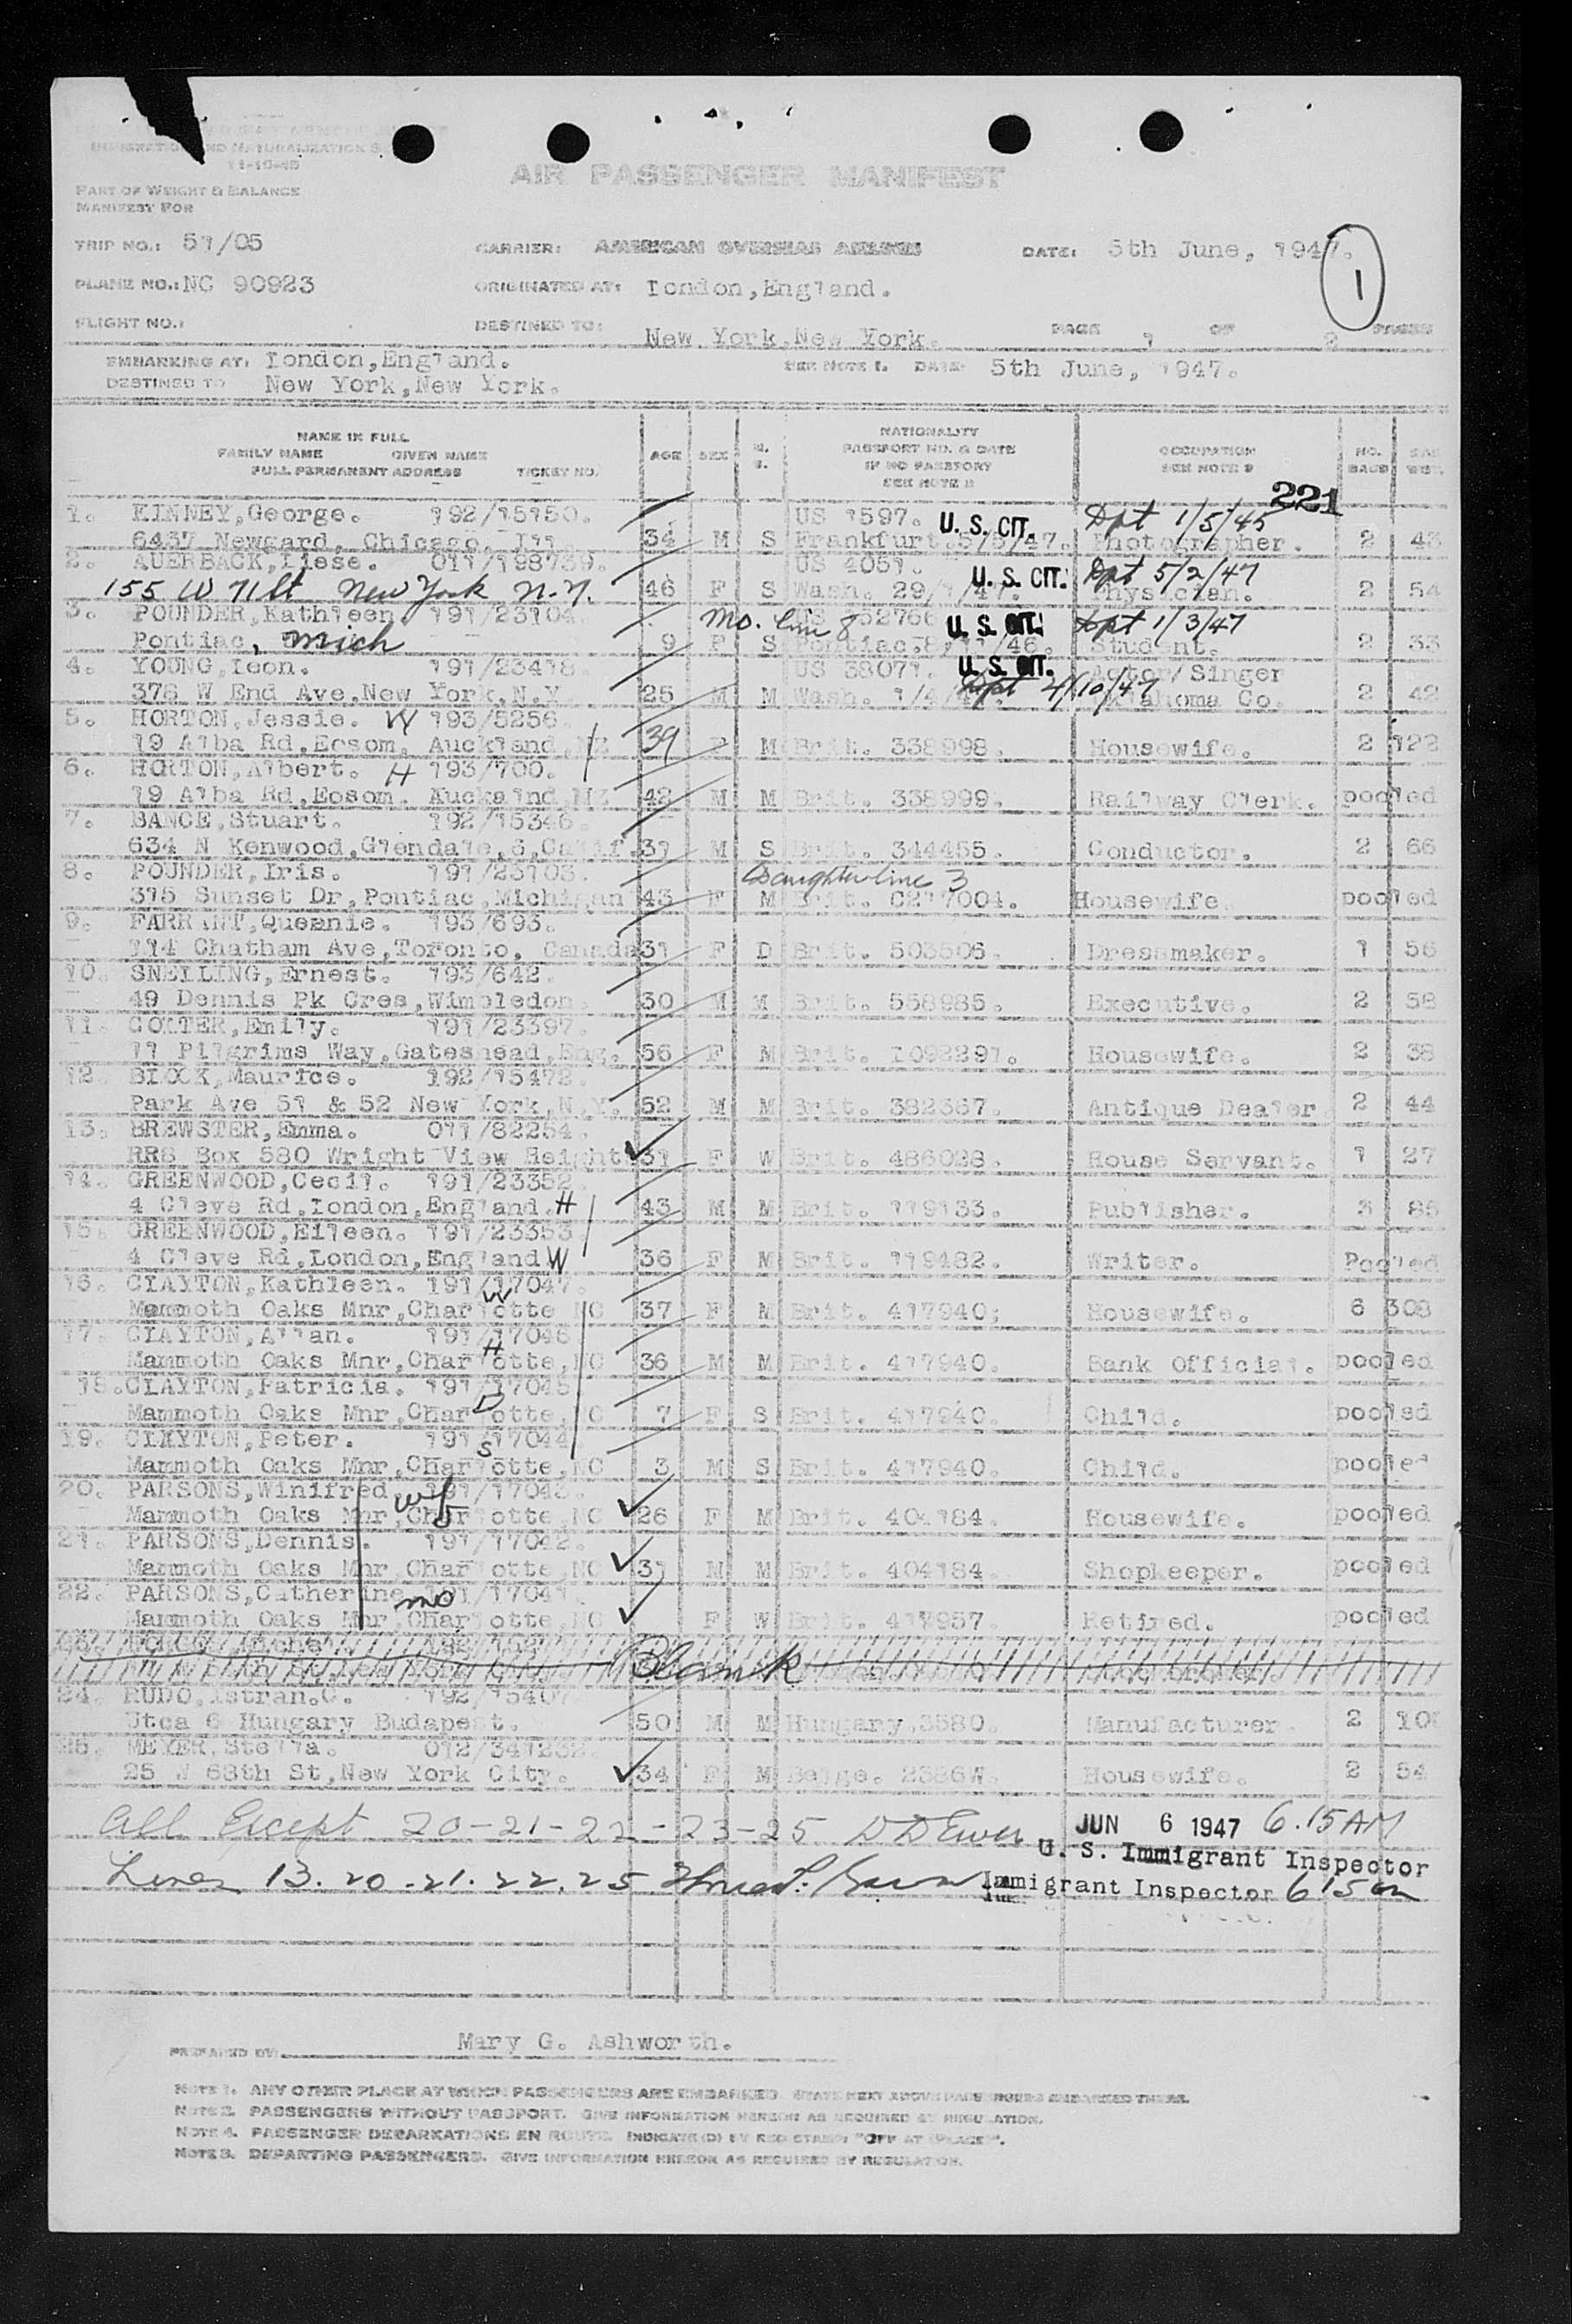 IMMIGRATION AND NATURALIZATION
11-15-45
AIR PASSENGER MANIFEST
PART OF WEIGHT & BALANCE
MANIFEST FOR
TRIP NO.: 51/05 CARRIER: AMERICAN OVERSEAS AIRLINES DATE: 5th June, 1947.
1
PLANE NO.: NC 90923 ORIGINATED AT: London,England.
FLIGHT NO.: DESTINED TO: New York,New York. PAGE 1 OF 2 PAGES
EMBARKING AT: London,England. SEE NOTE 1. DATE: 5th June, 1947.
DESTINED TO New York,New York.
NAME IN FULL
FAMILY NAME GIVEN NAME
FULL PERMANENT ADDRESS TICKET NO.
AGE SEX M. S.
NATIONALITY
PASSPORT NO. & DATE
IF NO PASSPORT
SEE NOTE 2
OCCUPATION
SEE NOTE 3
NO. BAGS
221
1. KINNEY,George. 192/15150. US 1597. U. S. CIT. Dpt 1/5/45
6437 Newgard, Chicago, Ill 34 M S Frankfurt. Photographer. 2 43
2. AUERBACK,Liese. 011/198739. US 4051. U. S. CIT. Dpt 5/2/47
155 W 71st New York N.Y. 46 F S Wash. 29/1/47. Physician. 2 54
3. POUNDER,Kathleen. 191/23104. Mo. line 8 U. S. CIT. Dpt 1/3/47
Pontiac, Mich 9 F S Pontiac. Student. 2 33
4. YOUNG,Leon. 191/23418. US 38071. U. S. CIT. Actor/Singer
376 W End Ave,New York,N.Y. 25 M M Wash. Dpt 4/10/47 Oklahoma Co. 2 42
5. HORTON,Jessie. W 193/5256.
19 Alba Rd,Eosom, Auckland,NZ 39 F M Brit. 338998. Housewife. 2 122
6. HORTON,Albert. H 193/700.
19 Alba Rd,Eosom. Auckalnd,NZ 42 M M Brit. 338999. Railway Clerk. pooled
7. BANCE,Stuart. 192/15346.
634 N Kenwood,Glendale,6,Calif. 31 M S Brit. 344455. Conductor. 2 66
8. POUNDER,Iris. 191/23103. Daughter line 3
315 Sunset Dr,Pontiac,Michigan 43 F M Brit. C217004. Housewife. pooled
9. FARRANT,Queenie. 193/693.
114 Chatham Ave,Toronto, Canada 31 F D Brit. 503506. Dressmaker. 1 56
10. SNELLING,Ernest. 193/642.
49 Dennis Pk Cres,Wimbledon. 30 M M Brit. 558985. Executive. 2 58
11. COLTER,Emily. 191/23397.
11 Pilgrims Way,Gateshead,Eng. 56 F M Brit. L092291. Housewife. 2 38
12. BLOCK,Maurice. 192/15472.
Park Ave 51 & 52 New York,N.Y. 52 M M Brit. 382367. Antique Dealer 2 44
13. BREWSTER,Emma. 011/82254.
RR8 Box 580 Wright View Height 31 F W Brit. 486028. House Servant. 1 27
14. GREENWOOD,Cecil. 191/23352.
4 Cleve Rd,London,England. H 43 M M Brit. 119133. Publisher. 3 85
15. GREENWOOD,Eileen. 191/23353.
4 Cleve Rd,London,England W 36 F M Brit. 119482. Writer. Pooled
16. CLAYTON,Kathleen. 191/17047.
W
Mammoth Oaks Mnr,Charlotte NC 37 F M Brit. 417940; Housewife. 6 308
17. CLAYTON,Allan. 191/17046
H
Mammoth Oaks Mnr,Charlotte,NC 36 M M Brit. 417940. Bank Official. pooled
18. CLAYTON,Patricia. 191/17045
D
Mammoth Oaks Mnr,Charlotte,NC 7 F S Brit. 417940. Child. pooled
19. CLAYTON,Peter. 191/17044
S
Mammoth Oaks Mnr,Charlotte,NC 3 M S Brit. 417940. Child. pooled
20. PARSONS,Winifred. 191/17043.
wf
Mammoth Oaks Mnr,Charlotte,NC 26 F M Brit. 404184. Housewife. pooled
21. PARSONS,Dennis. 191/17042.
Mammoth Oaks Mnr,Charlotte,NC 31 M M Brit. 404184. Shopkeeper. pooled
22. PARSONS,Catherine 191/17041.
mo
Mammoth Oaks Mnr,Charlotte,NC F W Brit. 417957. Retired. pooled
Blank
24. RUDO,Istran.G. 192/15407
Utca 6 Hungary Budapest. 50 M M Hungary.3580. Manufacturer. 2
25. MEYER,Stella. 012/341232.
25 W 68th St,New York City. 34 F M Belge. 2386W. Housewife. 2 54
All Except 20-21-22-23-25 D D Ewer JUN 6 1947 6.15 AM
U. S. Immigrant Inspector
Lines 13. 20 -21. 22. 25 Immigrant Inspector 615 am
PREPARED BY Mary G. Ashworth.
NOTE 1. ANY OTHER PLACE AT WHICH PASSENGERS ARE EMBARKED. STATE NEXT ABOVE PASSENGERS EMBARKED THERE.
NOTE 2. PASSENGERS WITHOUT PASSPORT. GIVE INFORMATION HEREON AS REQUIRED BY REGULATION.
NOTE 4. PASSENGER DEBARKATIONS EN ROUTE. INDICATE(D) BY RED STAMP "OFF AT (PLACE)".
NOTE 3. DEPARTING PASSENGERS. GIVE INFORMATION HEREON AS REQUIRED BY REGULATION.